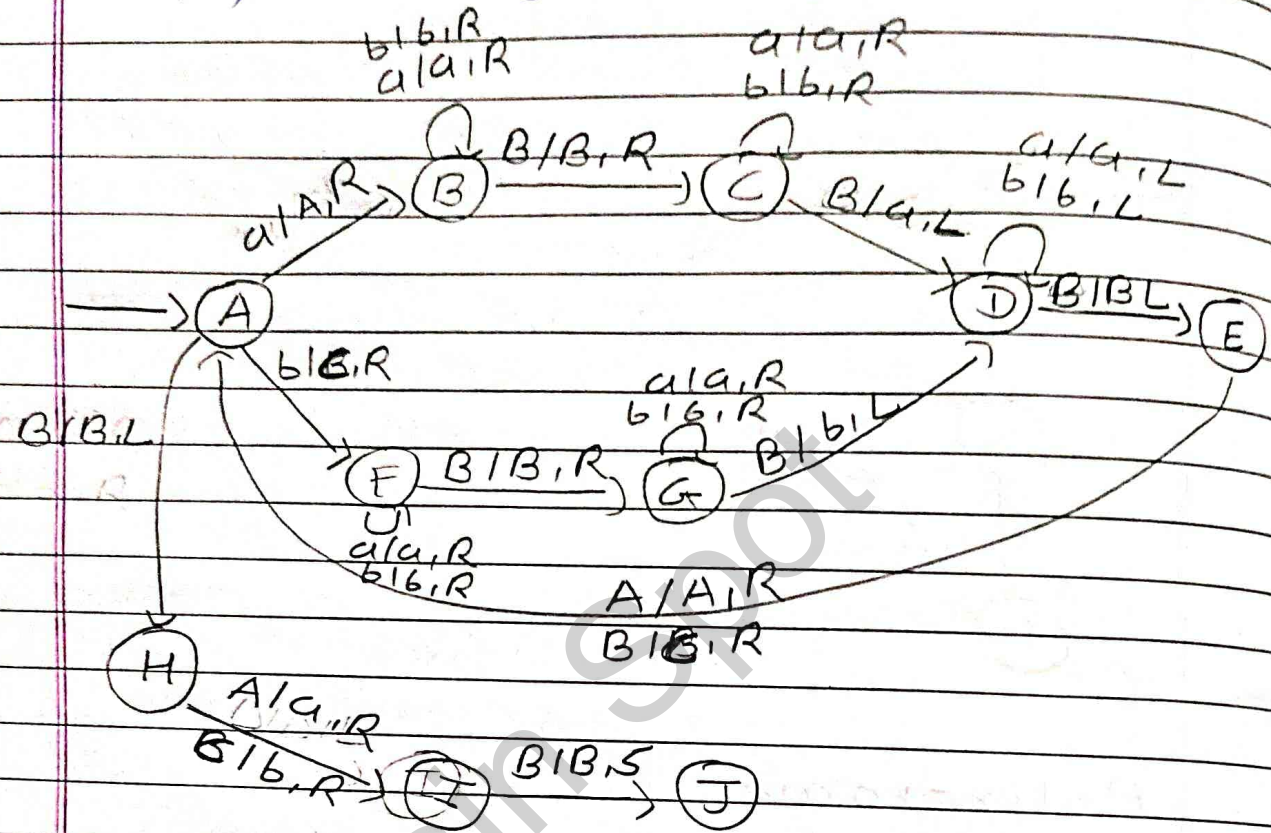 b/b,R
a/a,R
a/a,R
b/b,R
B/B,R
a/a,L
b/b,L
a/A,R
B
C
B/a,L
A
D
B/BL
E
b/C,R
a/a,R
b/b,R
B/b,L
B/B,L
F
B/B,R
G
a/a,R
b/b,R
A/A,R
H
A/a,R
I
B/B,S
J
Spot